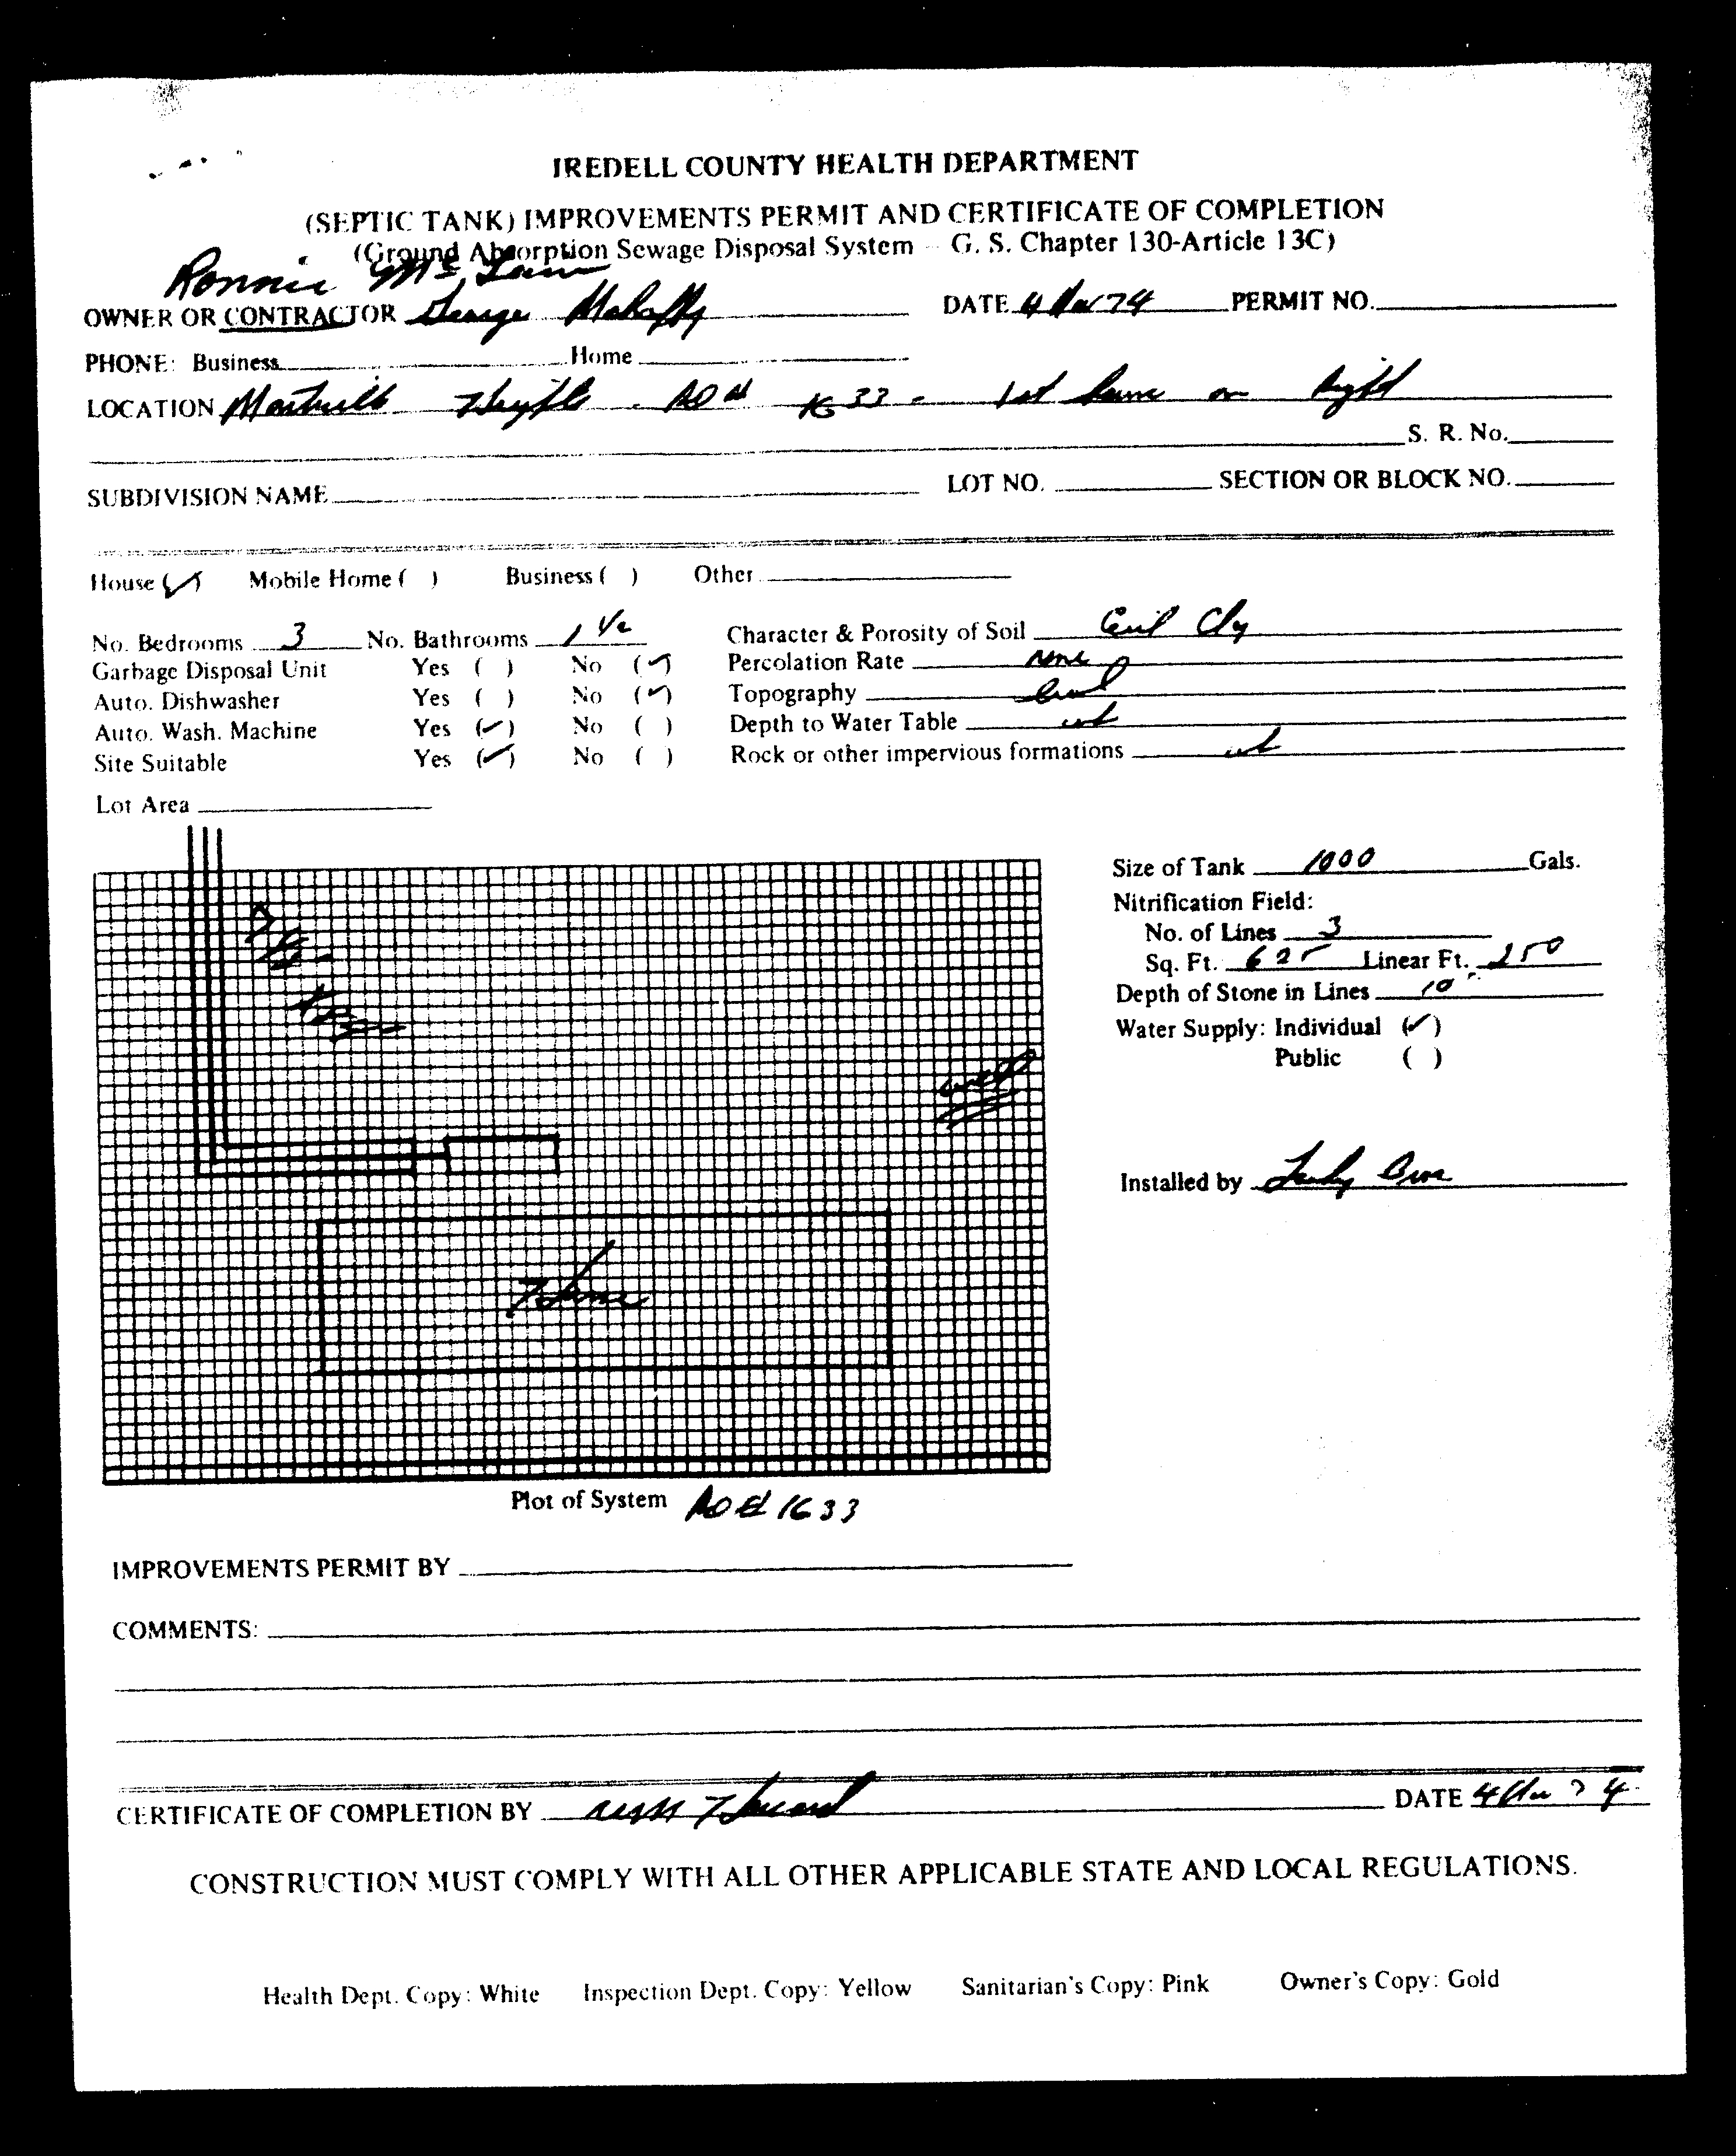 IREDELL COUNTY HEALTH DEPARTMENT
(SEPTIC TANK) IMPROVEMENTS PERMIT AND CERTIFICATE OF COMPLETION
(Ground Absorption Sewage Disposal System - G. S. Chapter 130-Article 13C)
Ronnie
OWNER OR CONTRACTOR George DATE 4 74 PERMIT NO.
PHONE: Business Home
LOCATION 1633 - 1st on Right
S. R. No.
SUBDIVISION NAME LOT NO. SECTION OR BLOCK NO.
House (✓) Mobile Home ( ) Business ( ) Other
No. Bedrooms 3 No. Bathrooms 1 1/2 Character & Porosity of Soil Clay
Garbage Disposal Unit Yes ( ) No (✓) Percolation Rate none
Auto. Dishwasher Yes ( ) No (✓) Topography
Auto. Wash. Machine Yes (✓) No ( ) Depth to Water Table
Site Suitable Yes (✓) No ( ) Rock or other impervious formations
Lot Area
Size of Tank 1000 Gals.
Nitrification Field:
No. of Lines 3
Sq. Ft. 625 Linear Ft. 250
Depth of Stone in Lines 10"
Water Supply: Individual (✓)
Public ( )
well
Installed by
Home
Plot of System 1633
IMPROVEMENTS PERMIT BY
COMMENTS:
CERTIFICATE OF COMPLETION BY DATE 4 74
CONSTRUCTION MUST COMPLY WITH ALL OTHER APPLICABLE STATE AND LOCAL REGULATIONS.
Health Dept. Copy: White Inspection Dept. Copy: Yellow Sanitarian's Copy: Pink Owner's Copy: Gold